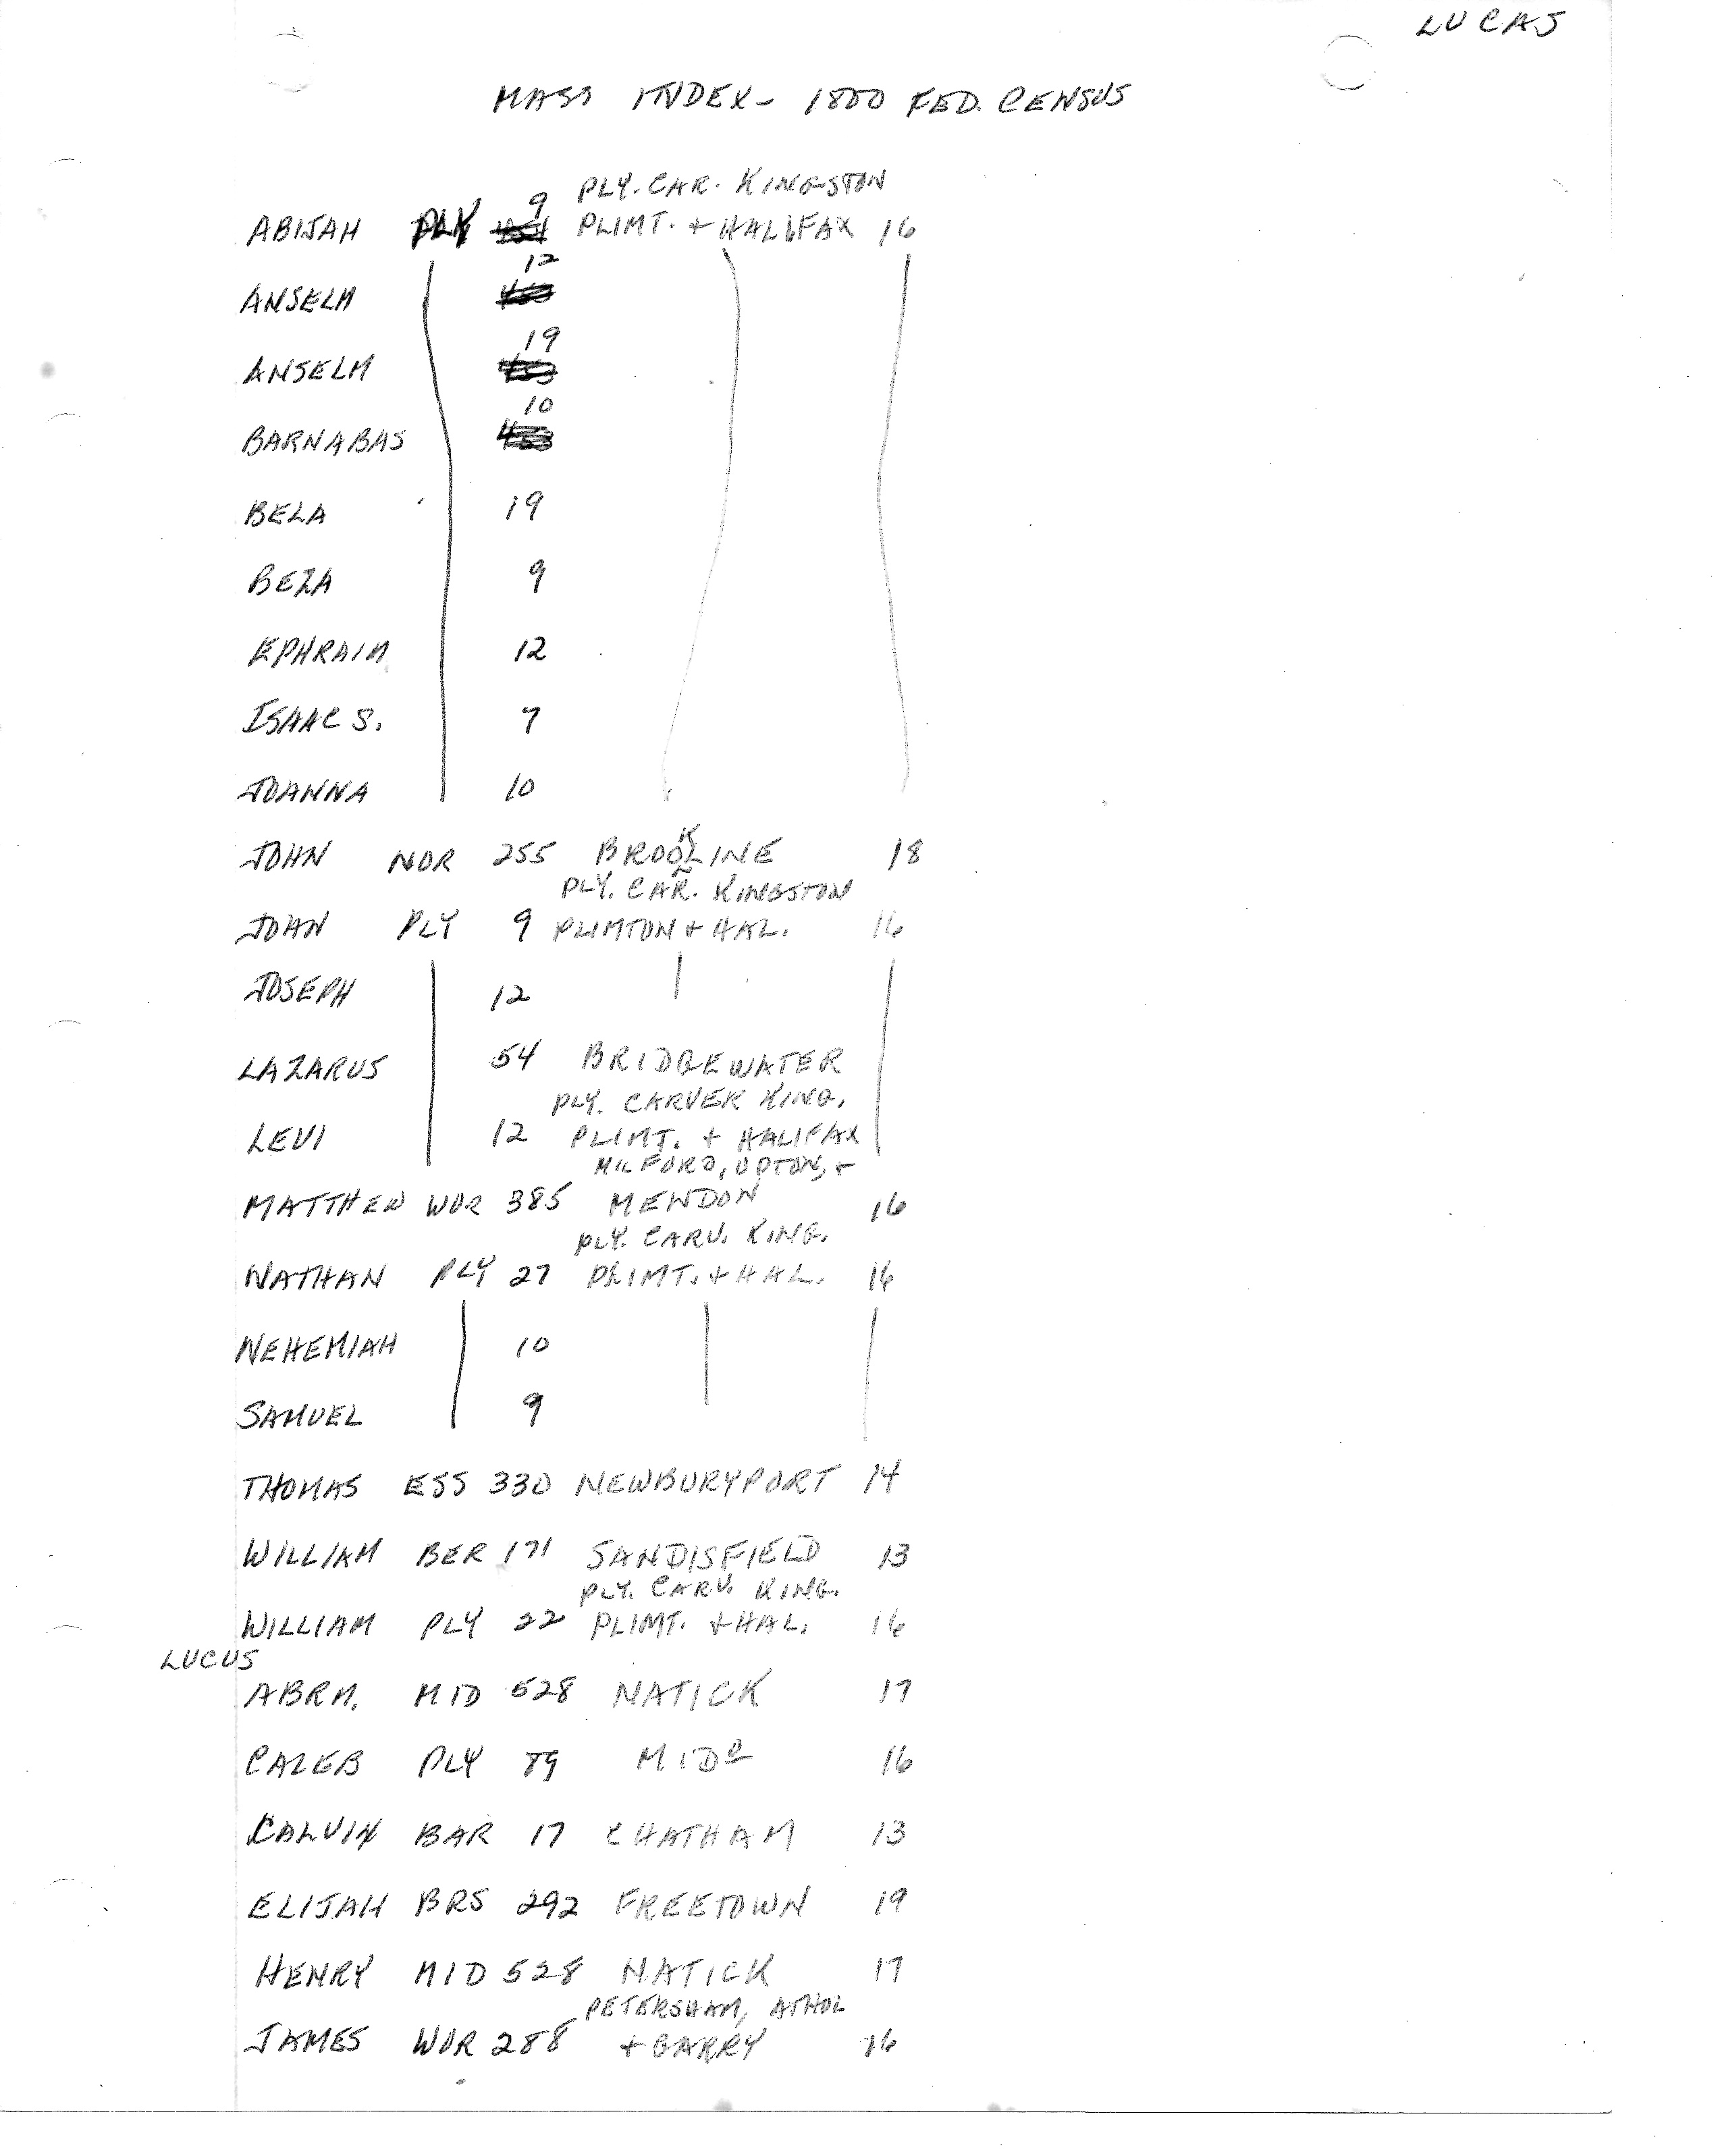 LUCAS
MASS INDEX- 1800 FED. CENSUS
PLY. CAR. KINGSTON
ABIJAH PLY 9 PLIMT. + HALIFAX 16
ANSELM 12
ANSELM 19
BARNABAS 10
BELA 19
BEZA 9
EPHRAIM 12
ISAAC S. 7
JOANNA 10
JOHN NOR 255 BROOKLINE 18
PLY. CAR. KINGSTON
JOHN PLY 9 PLIMTON + HAL. 16
JOSEPH 12
LAZARUS 54 BRIDGEWATER
PLY. CARVER KING.
LEVI 12 PLIMT. + HALIFAX
MILFORD, UPTON, +
MATTHEW WOR 385 MENDON 16
PLY. CARV. KING.
NATHAN PLY 27 PLIMT. + HAL. 16
NEHEMIAH 10
SAMUEL 9
THOMAS ESS 330 NEWBURYPORT 14
WILLIAM BER 171 SANDISFIELD 13
PLY. CARV. KING.
WILLIAM PLY 22 PLIMT. + HAL. 16
LUCUS
ABRM. MID 528 NATICK 17
CALEB PLY 89 MIDC 16
CALVIN BAR 17 CHATHAM 13
ELIJAH BRS 292 FREETOWN 19
HENRY MID 528 NATICK 17
PETERSHAM, ATHOL
JAMES WOR 288 + BARRY 16